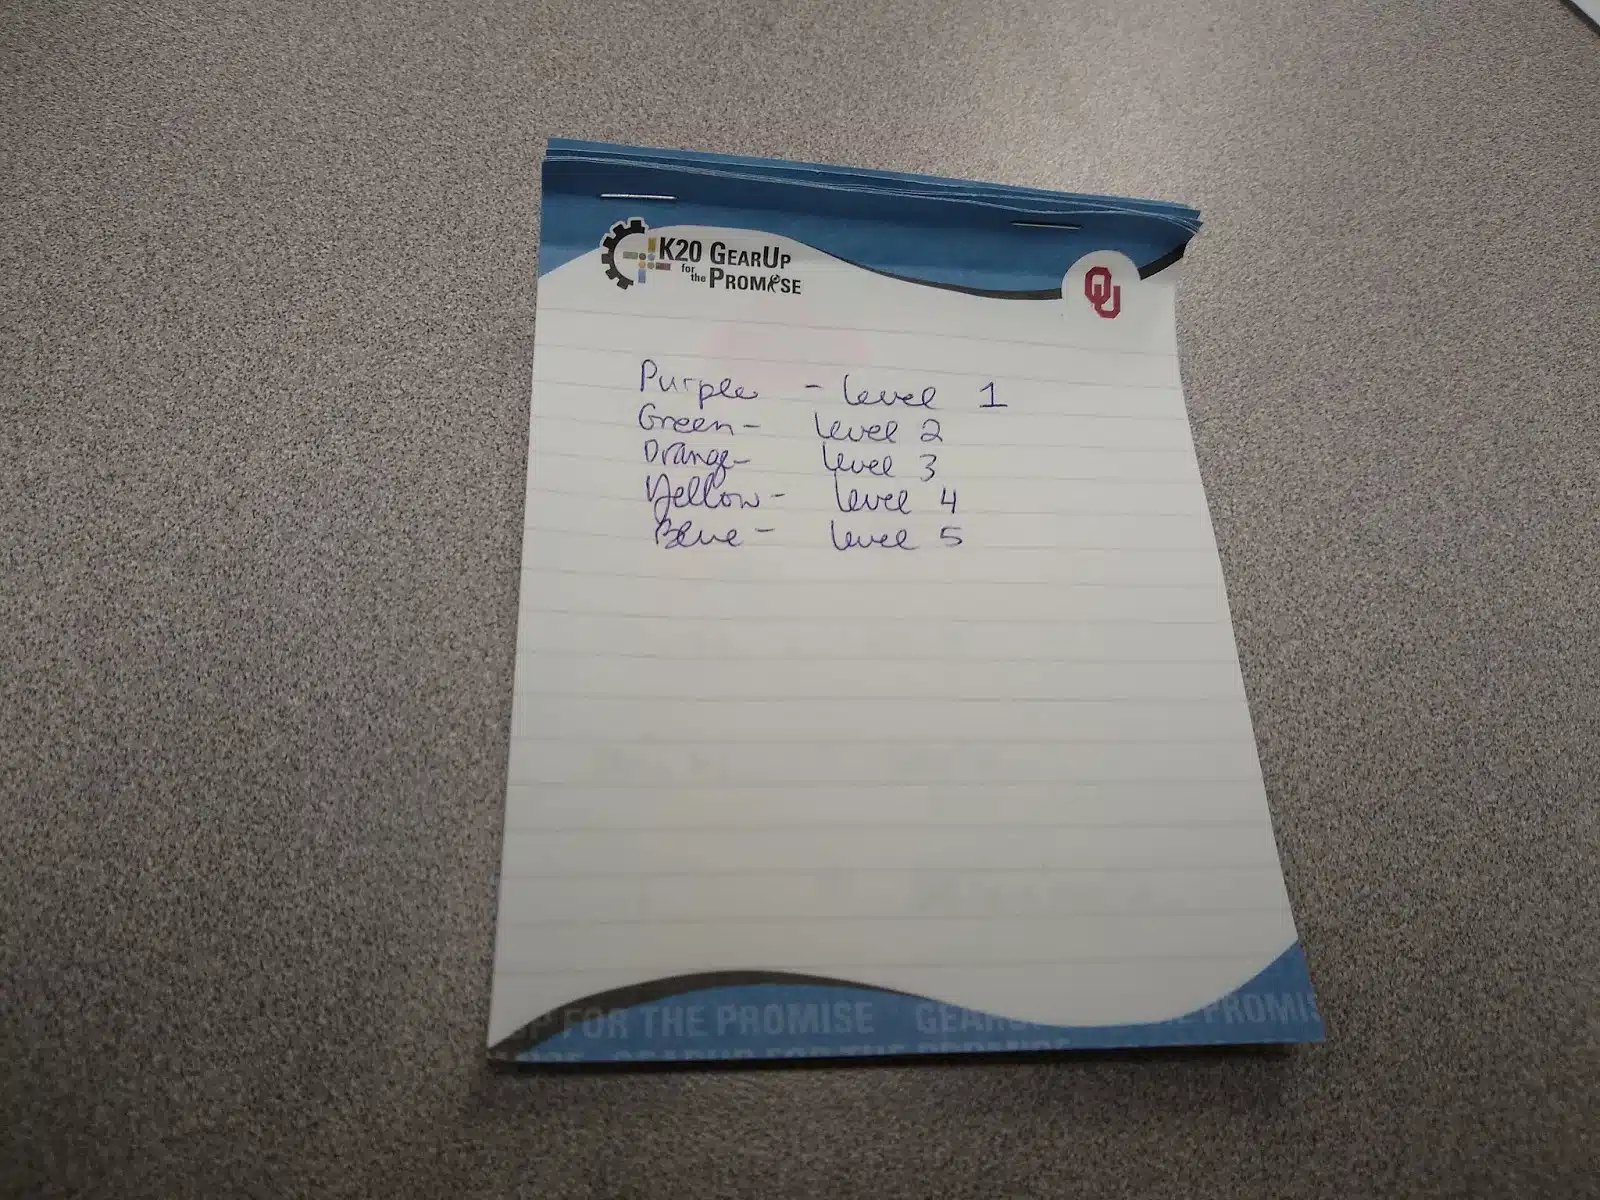 K20 GEARUP
for the PROMISE
OU
Purple - Level 1
Green- Level 2
Orange- Level 3
Yellow- Level 4
Blue- Level 5
UP FOR THE PROMISE GEARUP THE PROMIS
GEARUP FOR THE PROMISE